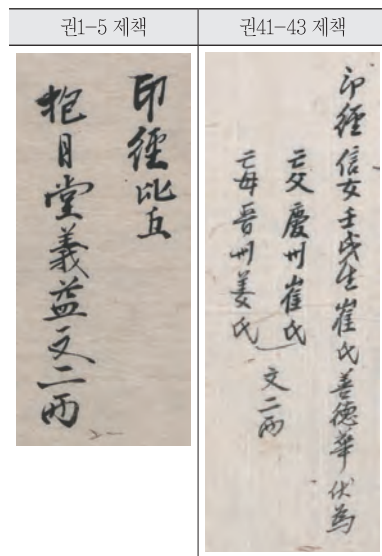 권1-5 제책
권41-43 제책
印經比丘
抱月堂義益文二兩
印經信女壬戌生崔氏善德華伏爲
亡父慶州崔氏
亡母晋州姜氏
文二兩